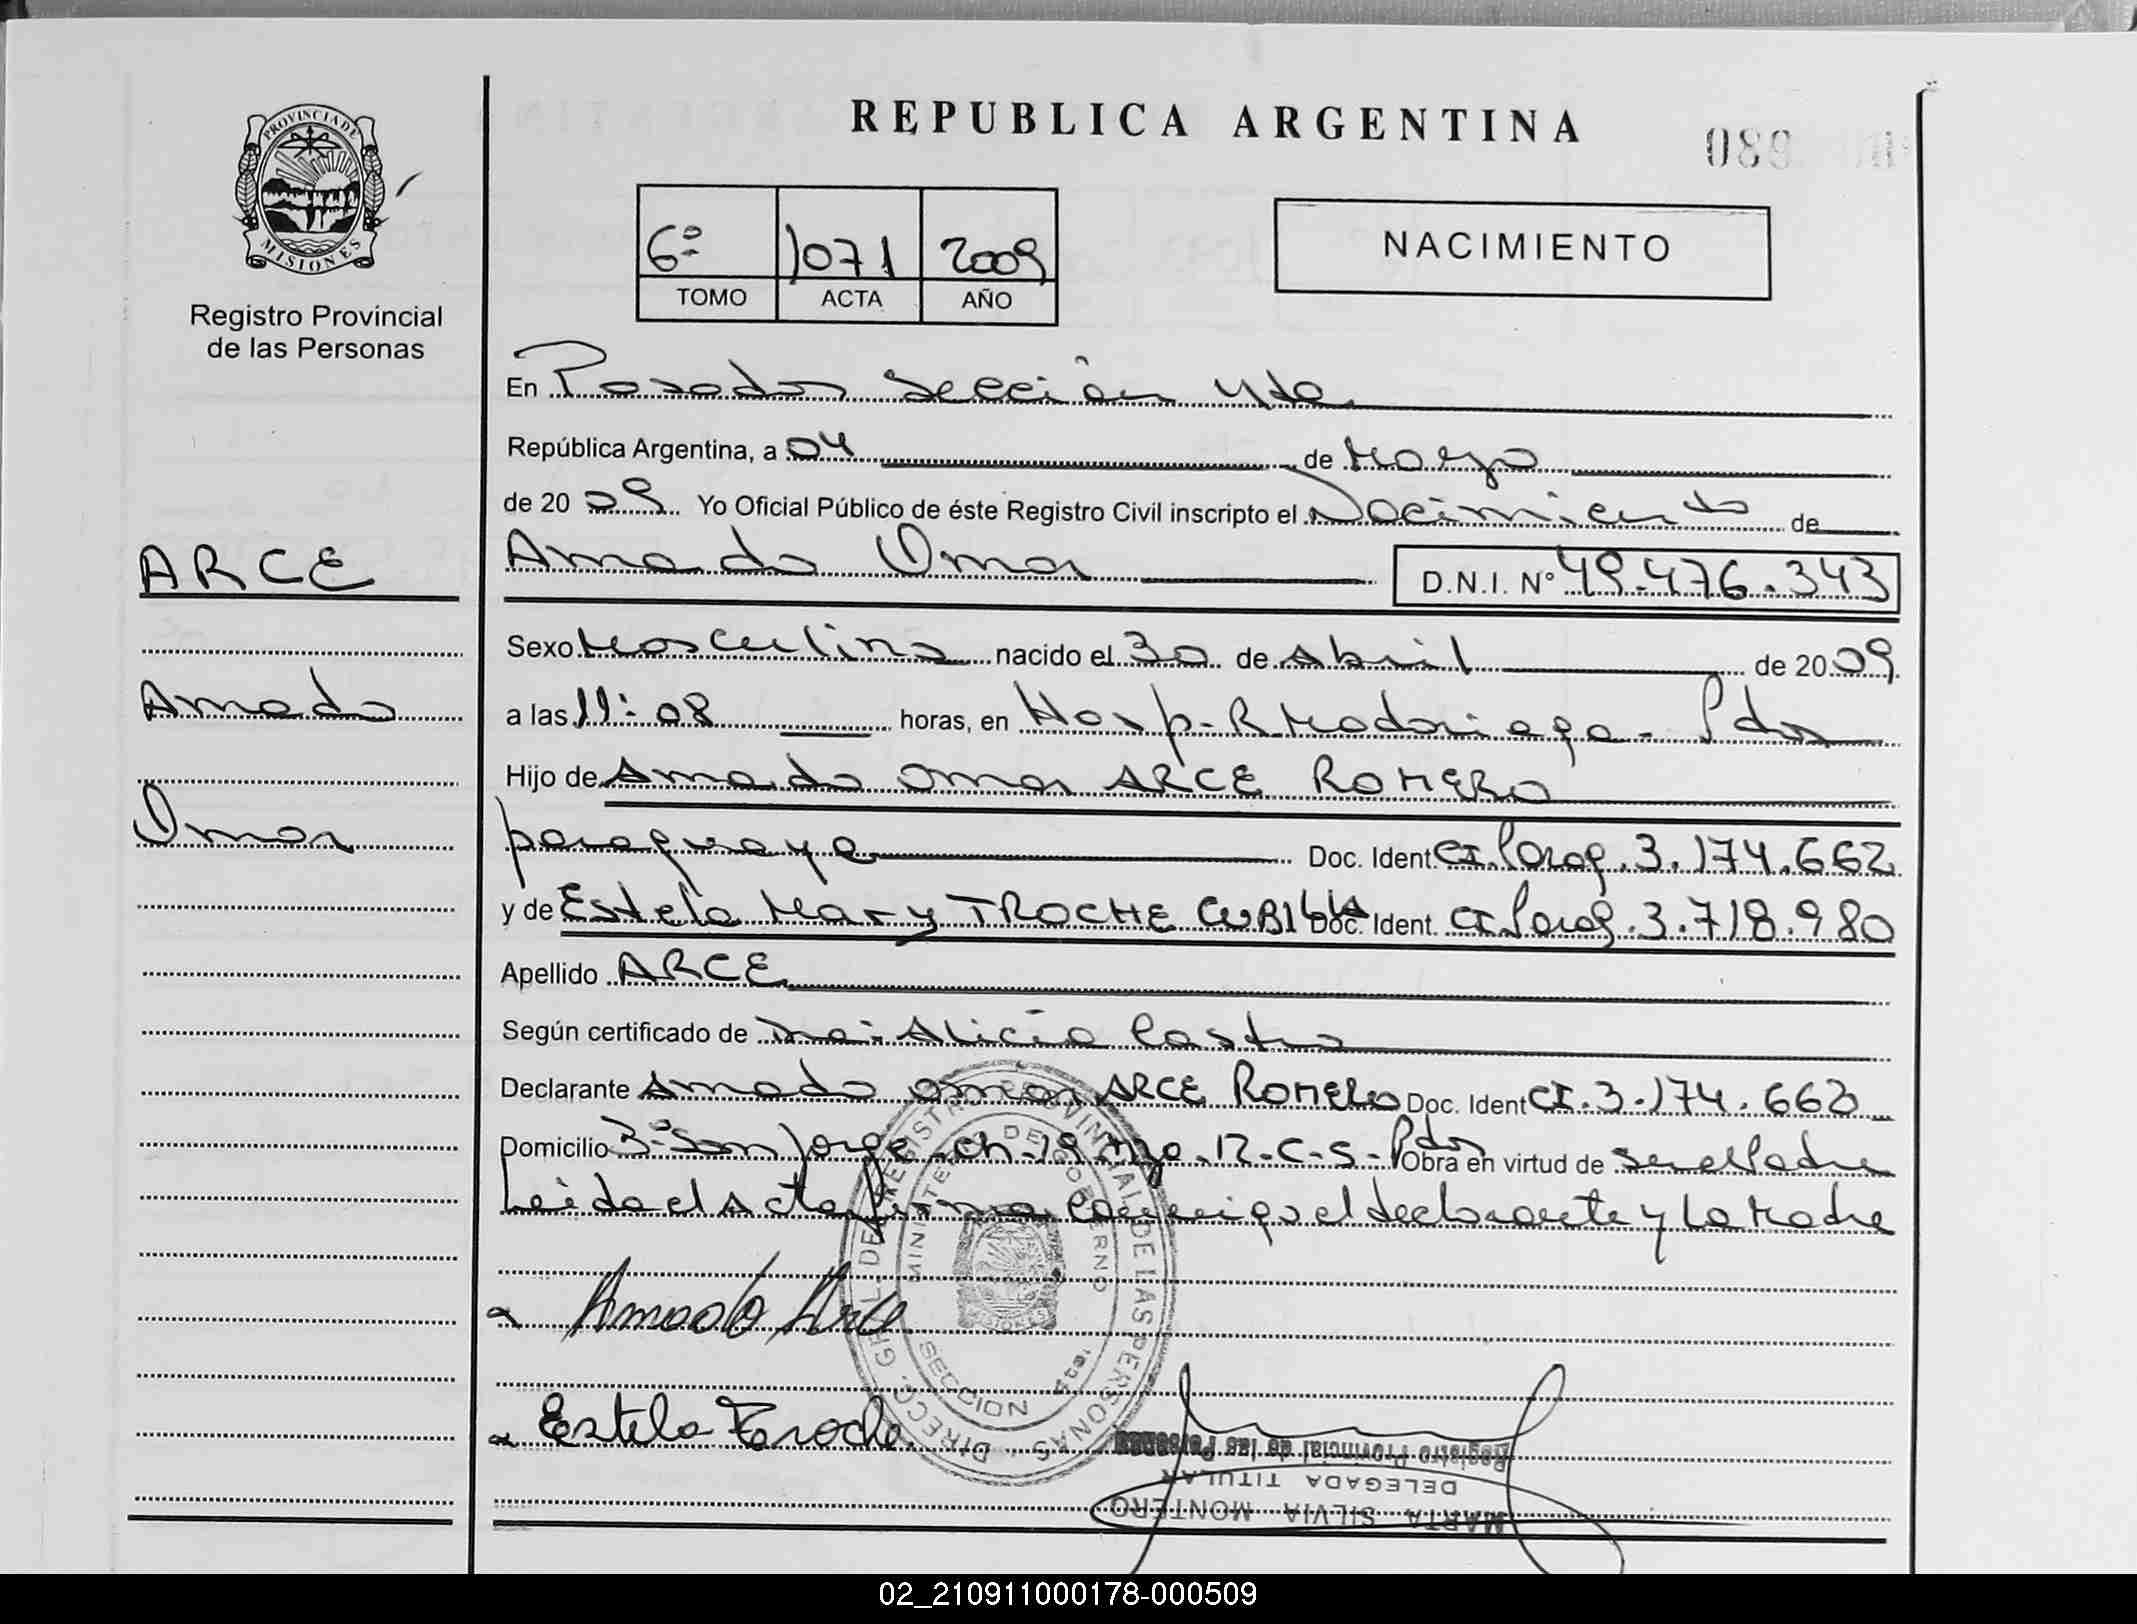 REPUBLICA ARGENTINA
089
PROVINCIA DE
MISIONES
Registro Provincial
de las Personas
6º 1071 2009
TOMO ACTA AÑO
NACIMIENTO
En Posadas Sección 4ta
República Argentina, a 04 de Mayo
de 2009 Yo Oficial Público de éste Registro Civil inscripto el Nacimiento de
ARCE
Amado Omar D.N.I. Nº 49.476.343
Sexo Masculino nacido el 30 de Abril de 2009
Amado
a las 11:08 horas, en Hosp. R Madariaga - Pdas
Hijo de Amado Omar ARCE ROMERO
Omar
paraguaya Doc. Ident. CI. Parag. 3.174.662
y de Estela Mary TROCHE CUBILLA Doc. Ident. CI Parag. 3.718.980
Apellido ARCE
Según certificado de Alicia Castro
Declarante Amado Omar ARCE ROMERO Doc. Ident CI. 3.174.662
Domicilio Bº San Jorge - ch. 19 Mzo. 12 - C-5 - Pdas Obra en virtud de ser el Padre
Leida el Acta firma conmigo el declarante y La Madre
DIRECC. GRAL. DEL REGISTRO PROVINCIAL DE LAS PERSONAS
MINISTERIO DE GOBIERNO
SECCION
Amado Arce
Estela Troche
MARTA SILVIA MONTERO
DELEGADA TITULAR
Registro Provincial de las Personas
02_210911000178-000509